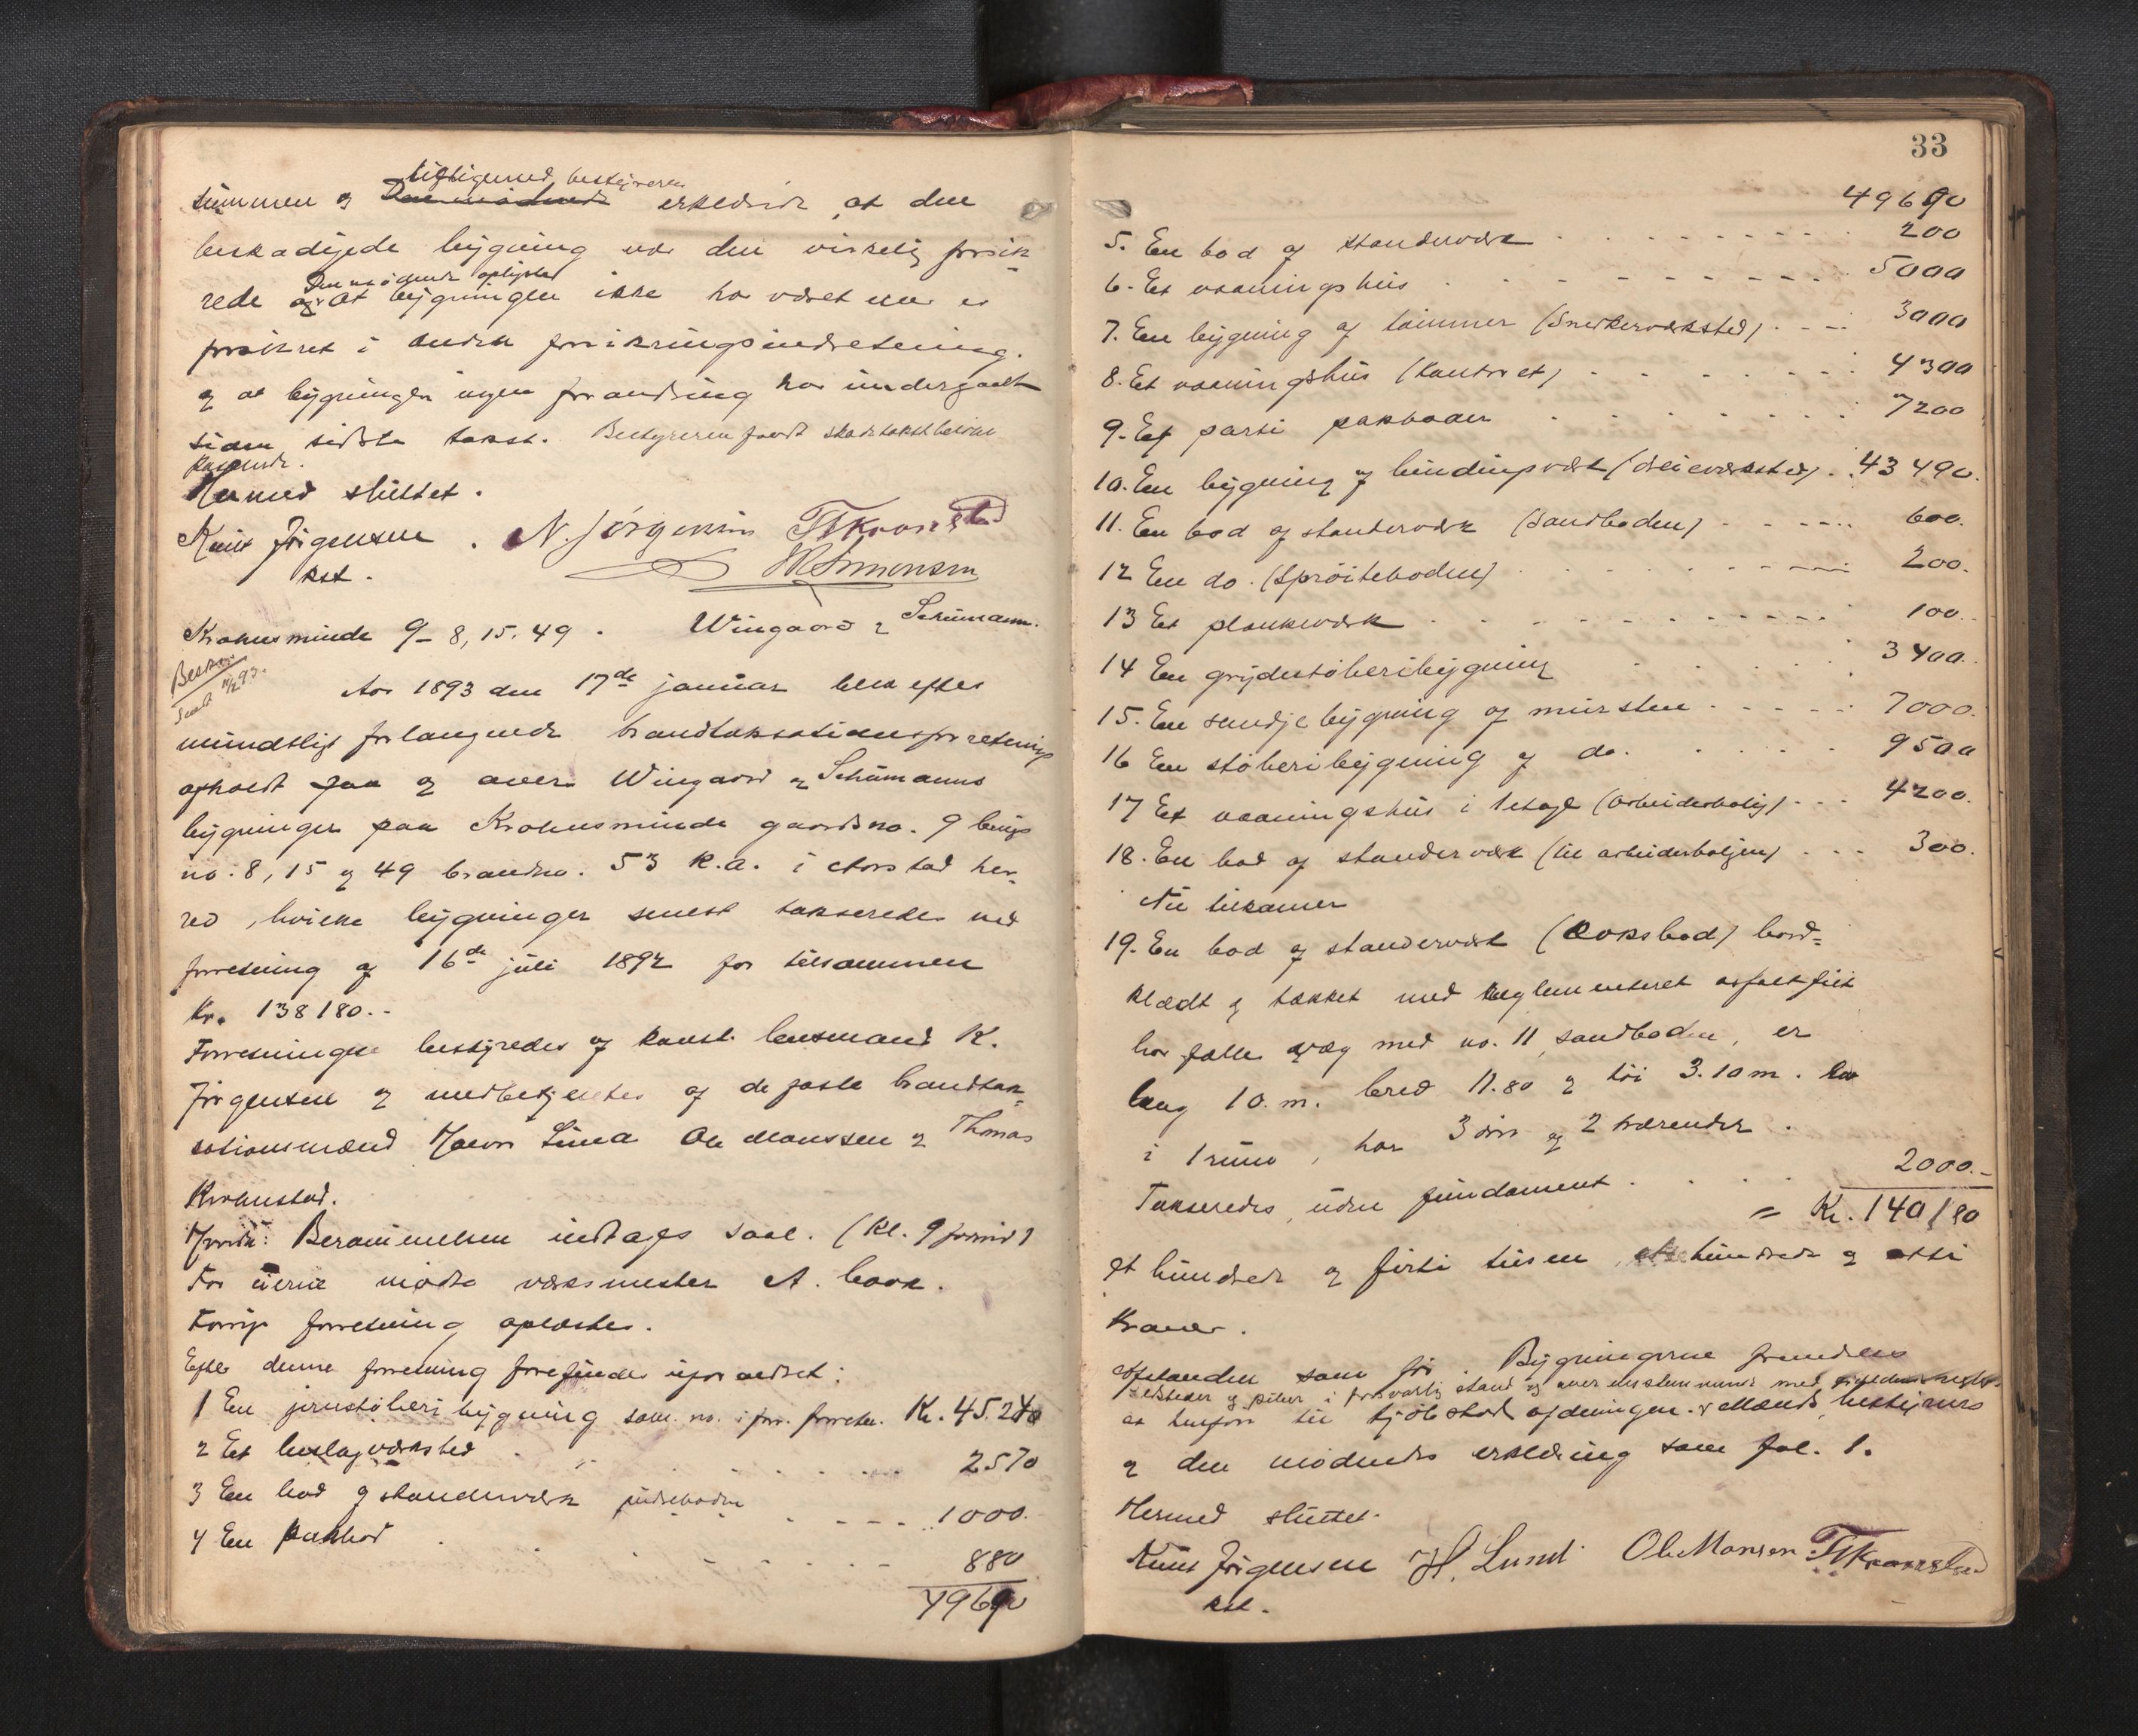 rigtigmed, bestyreren
summen og Den mødende erklærede at den
beskadigede bygning var den virkelig forsik-
Den mødende oplyste
rede og at bygningen ikke har været eller er
forsikret i anden forsikringsindretning.
og at bygningen ingen forandring har undergaaet
siden sidste takst. Bestyreren fandt skadetaksten
passende.
Hermed sluttet.
Knut Jørgensen. N. Jørgensen T. Kronstad
kst. Simonsen
Krohnsminde 9 - 8, 15. 49. Wingaard & Schumann.
Aar 1893 den 17de januar blev efter
mundtligt forlangende brandtaksationsforretning
afholdt paa og over Wingaard & Schumanns
bygninger paa Krohnsminde gaardsno. 9 brugs
no: 8, 15 og 49 brandno. 53 k.a. i Aarstad her-
red, hvilke bygninger senest takseredes ved
forretning af 16de juli 1892 for tilsammen
Kr. 138180.-
Forretningen bestyredes af konst. lensmand K.
Jørgensen og medbetjentes af de faste brandtak-
sationsmænd Lund Ole Monssen & Thomas
Kronstad.
Beramimelsen indtages saal. (kl. 9 formid)
For eierne mødte værksmester A. .
Forrige forretning oplæstes.
Efter denne forretning forefindes uforandret:
1 En jernstøberibygning som no. i for. forretn. Kr. 45.240
2 Et beslagværksted 2570
3 En bod af standerværk 1000.
4 En pakbod 880
49690
33
49690
5. En bod af standerværk 200
6. Et vaaningshus 5000
7. En bygning af tømmer (Snedkerværksted) 3000
8. Et vaaningshus (Kontoret) 4300
9. Et parti pakboder 7200
10. En bygning af bindingsværk (Dreieværksted) 43490.
11. En bod af standerværk (Sandboden) 600.
12 En do. (Sprøiteboden) 200.
13 Et plankeværk 100.
14 En grydestøberibygning 3400.
15. En bygning af mursten 7000.
16 En støberibygning af do. 9500
17 Et vaaningshus i 1 etage (Arbeiderbolig) 4200.
18. En bod af standerværk (til arbeiderboligen) 300.
Nu tilkommer
19. En bod af standerværk (Coksbod) bord-
klædt og tækket med reglementeret asfaltfilt
har fælles væg med no. 11, sandboden, er
lang 10. m. bred 11.80 og høi 3.10 m.
i 1 rum, har 3 dør og 2 .
Takseredes, uden fundament 2000.-
= Kr. 140180
et hundrede og firti tusen, et hundrede og otti
Kroner.
Afstanden som før. Bygningerne fremdeles
ildsteder og piber i forsvarlig stand og overensstemmende med
at henføre til kjøbstadafdelingen. Mænds, bestyrers
og den mødendes erklæring som fol. 1.
Hermed sluttet.
Knut Jørgensen H. Lund Ole Monsen T. Kronstad
kst.